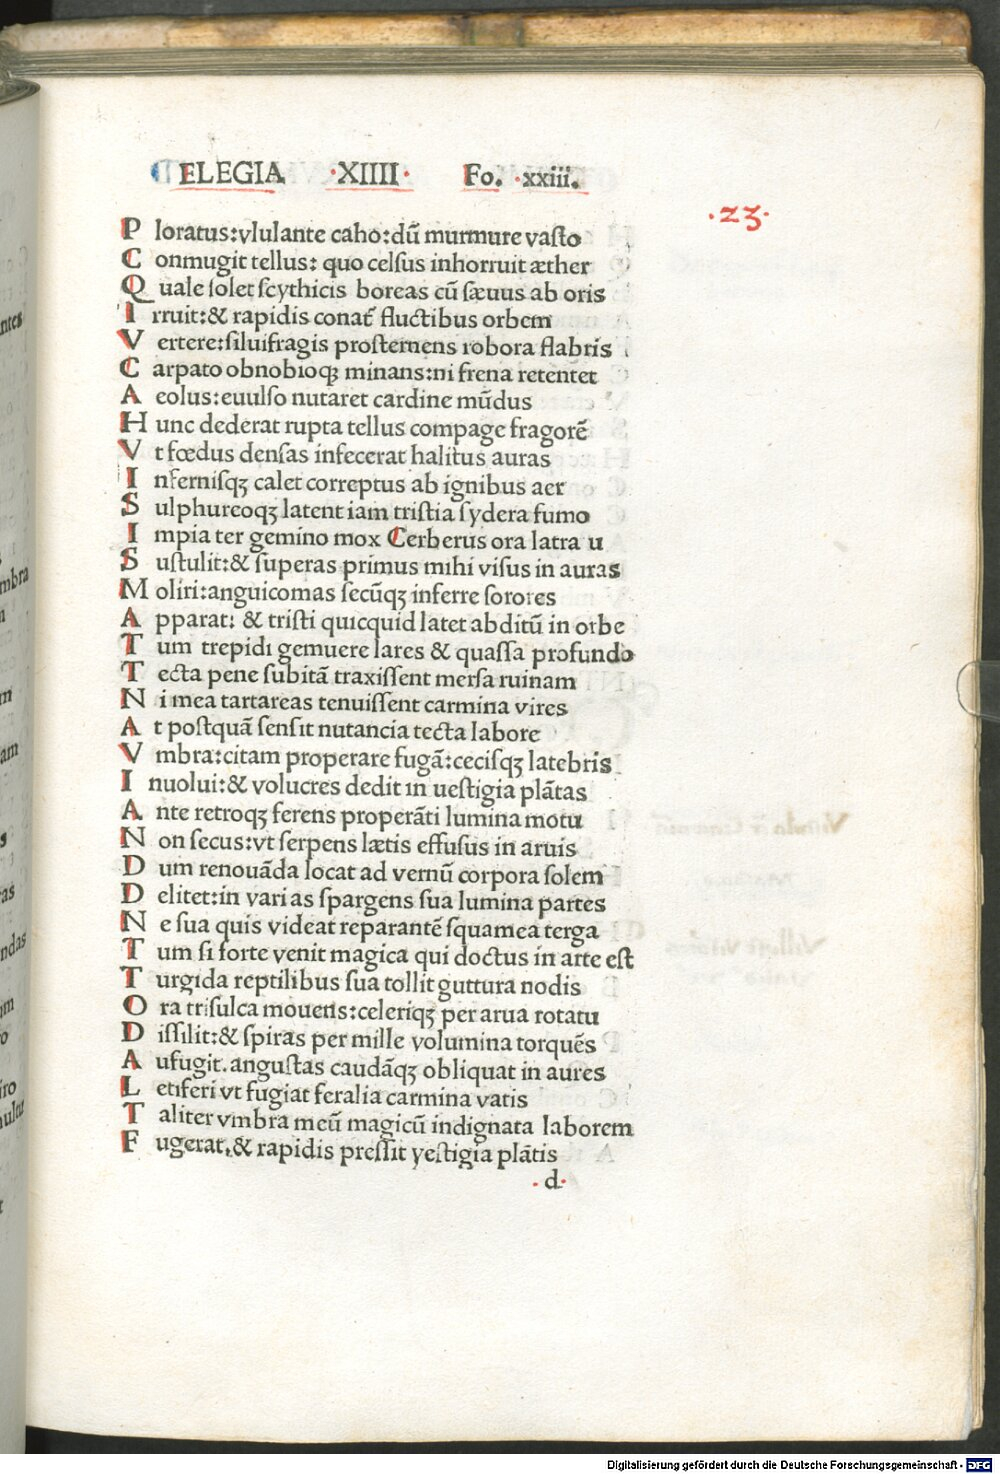 ELEGIA ·XIIII· Fo. ·xxiii.
·23·
P loratus:vlulante caho:dũ murmure vaſto
C onmugit tellus: quo celſus inhorruit æther
Q uale ſolet ſcythicis boreas cũ ſæuus ab oris
I rruit:& rapidis conat̃ fluctibus orbem
V ertere:ſiluifragis proſternens robora flabris
C arpato obnobioqꝫ minans:ni frena retentet
A eolus:euulſo nutaret cardine mũdus
H unc dederat rupta tellus compage fragorẽ
V t fœdus denſas infecerat halitus auras
I nfernisqꝫ calet correptus ab ignibus aer
S ulphureoqꝫ latent iam triſtia ſydera fumo
I mpia ter gemino mox Cerberus ora latra u
S uſtulit:& ſuperas primus mihi viſus in auras
M oliri:anguicomas ſecũqꝫ inferre ſorores
A pparat: & triſti quicquid latet abditũ in orbe
T um trepidi gemuere lares & quaſſa profundo
T ecta pene ſubitã traxiſſent merſa ruinam
N i mea tartareas tenuiſſent carmina vires
A t poſtquã ſenſit nutancia tecta labore
V mbra:citam properare fugã:ceciſqꝫ latebris
I nuolui:& volucres dedit in ueſtigia plãtas
A nte retroqꝫ ferens properãti lumina motu
N on ſecus:vt ſerpens lætis effuſus in aruis
D um renouãda locat ad vernũ corpora ſolem
D elitet:in vari as ſpargens ſua lumina partes
N e ſua quis videat reparantẽ ſquamea terga
T um ſi forte venit magica qui doctus in arte eſt
T urgida reptilibus ſua tollit guttura nodis
O ra triſulca mouens:celeriqꝫ per arua rotatu
D iſſilit:& ſpiras per mille volumina torquẽs
A ufugit. anguſtas caudãqꝫ obliquat in aures
L etiferi vt fugiat feralia carmina vatis
T aliter vmbra meũ magicũ indignata laborem
F ugerat,& rapidis preſſit yeſtigia plãtis
·d·
Digitalisierung gefördert durch die Deutsche Forschungsgemeinschaft - DFG